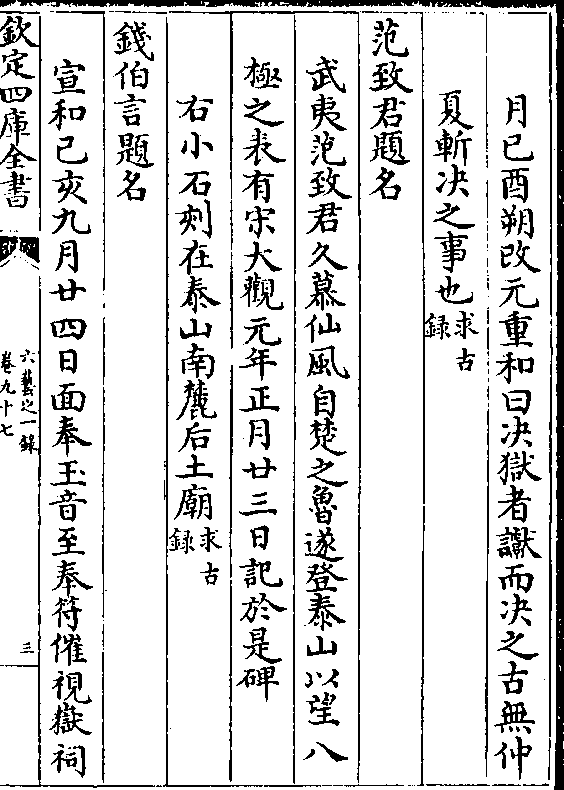 月已酉朔改元重和曰决獄者讞而决之古無仲
夏斬决之事也求古録
范致君題名
武夷范致君久慕仙風自楚之魯遂登泰山以望八
極之表有宋大觀元年正月廿三日記於是碑
右小石刻在泰山南麓后土廟求古録
錢伯言題名
宣和己亥九月廿四日面奉玉音至奉符催視嶽祠
欽定四庫全書
六藝之一録
卷九十七
三